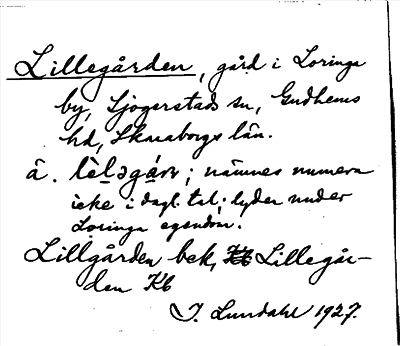 Lillegården, gård i Loringa
by, Sjogerstads sn, Gudhems
hd, Skaraborgs län.
å. lìləgárn; nämnes numera
icke i dagl. tal; lyder under
Loringa egendom.
Lillgården bek, Lillegår-
den Kb
I. Lundahl 1927.